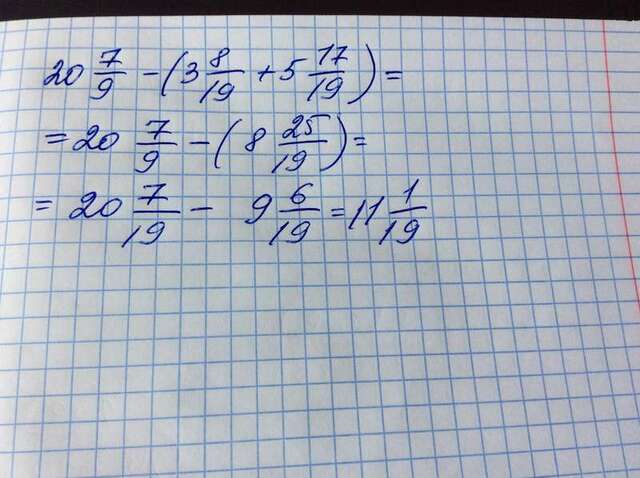 20 7/9 - (3 8/19 + 5 17/19) =
= 20 7/9 - (8 25/19) =
= 20 7/19 - 9 6/19 = 11 1/19